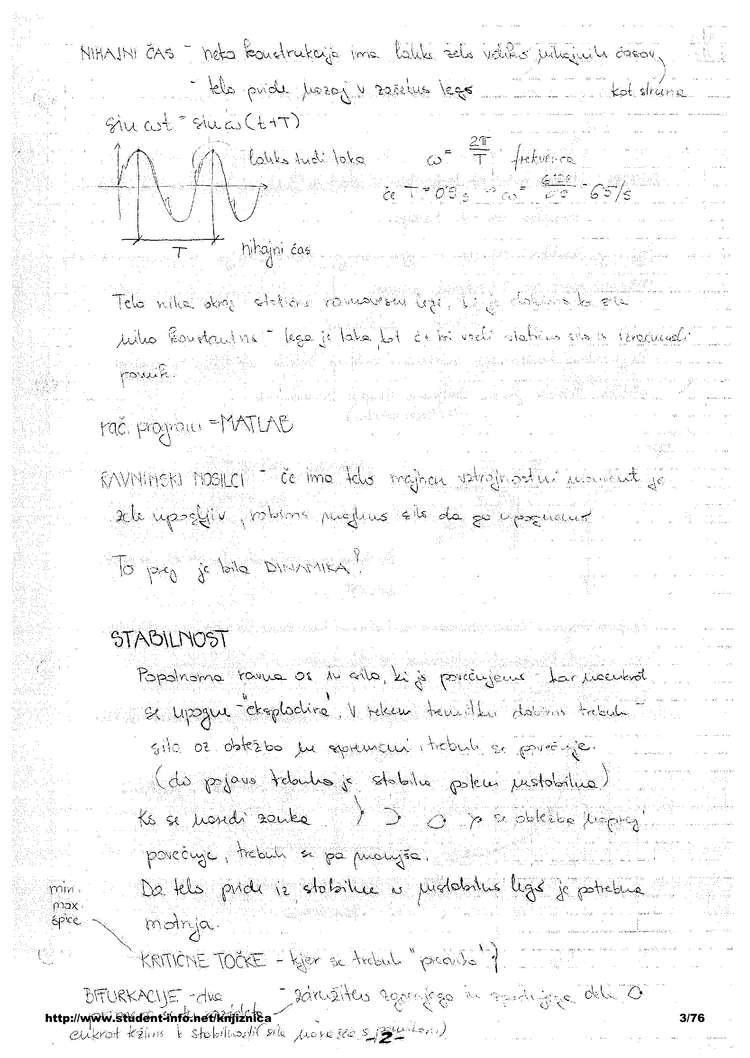 NIHAJNI ČAS - neka konstrukcija ima lahko zelo veliko nihajnih časov,
- telo pride nazaj v začetno lego kot struna
sin ωt = sin ω(t+T)
lahko tudi taka ω = 2π/T frekvenca
če T = 0,9 s ω =
T nihajni čas
Telo niha okoli statične ravnovesne lege, ki je
niha konstantno - lega je taka, kot če bi vzeli statično silo in izračunali
pomik.
rač. program = MATLAB
RAVNINSKI NOSILCI - če ima telo majhen vztrajnostni moment je
zelo upogljiv, rabimo majhno silo da ga upognemo
To prej je bila DINAMIKA!
STABILNOST
Popolnoma ravna os in sila, ki jo povečujemo kar naenkrat
se upogne - "eksplodira". V nekem trenutku dobimo trebuh -
sila oz obtežba se spremeni, trebuh se povečuje.
(do pojava trebuha je stabilna potem nestabilna)
Ko se naredi zanka se obtežba naprej
povečuje, trebuh se pa manjša.
Da telo pride iz stabilne v nestabilno lego je potrebna
motnja.
min.
max.
špice
KRITIČNE TOČKE - kjer se trebuh
BIFURKACIJE - dva - združitev zgornjega in spodnjega dela
http://www.student-info.net/knjiznica 3/76
k stabilnosti (sila
-2-